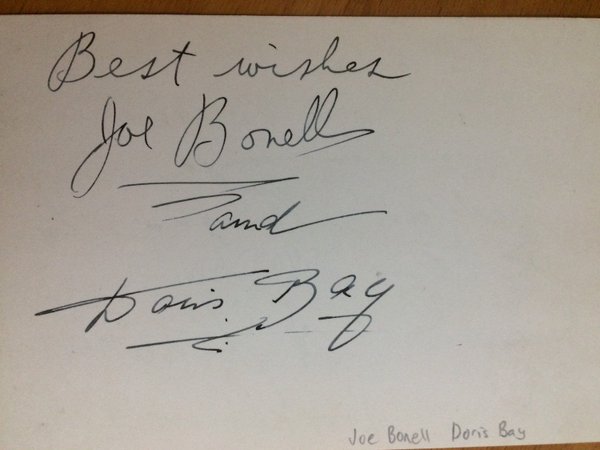 Best wishes
Joe Bonell
and
Doris Bay
Joe Bonell Doris Bay